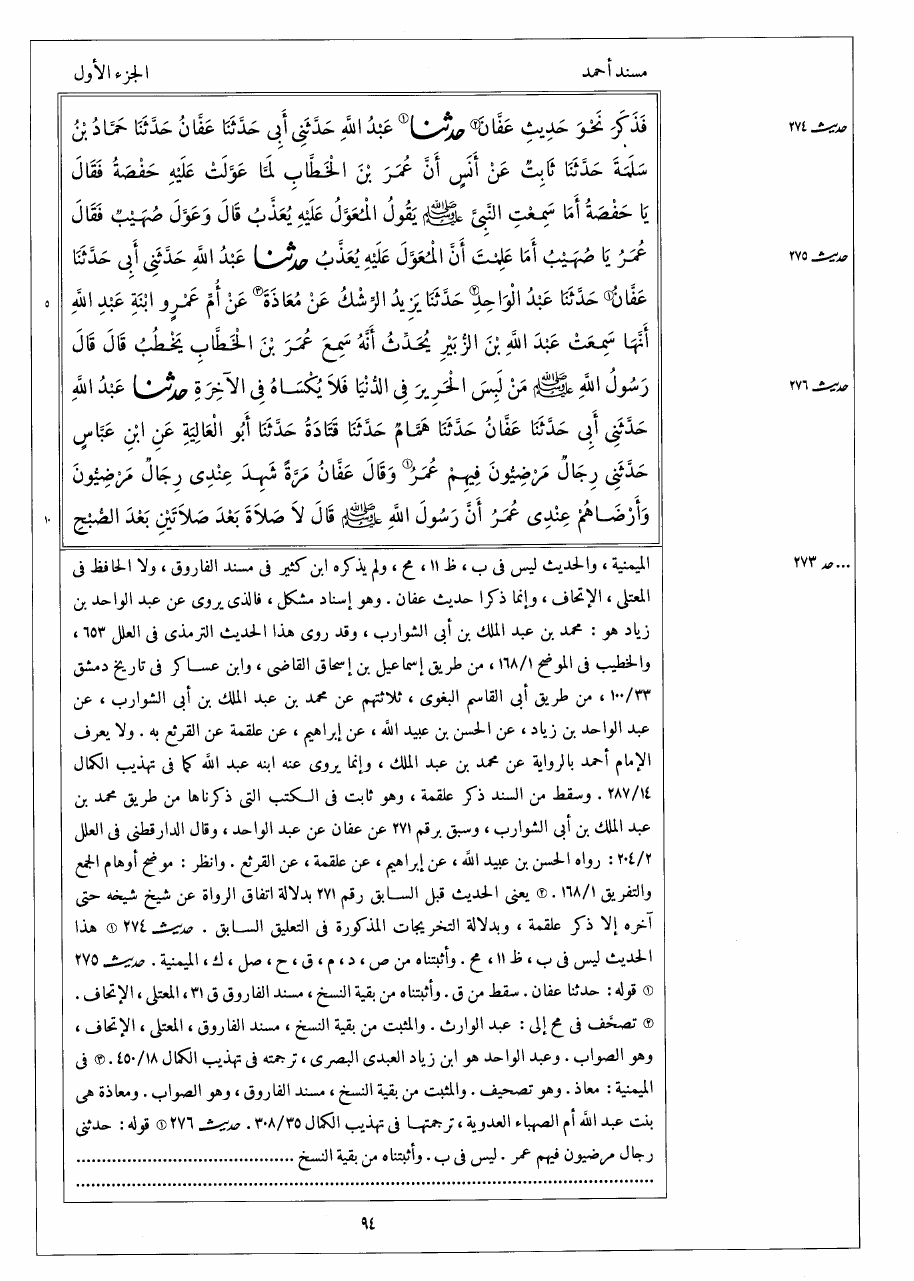 مسند أحمد الجزء الأول
حديث ٢٧٤
فَذَكَرَ نَحْوَ حَدِيثِ عَفَّانَ② حدثنا① عَبْدُ اللَّهِ حَدَّثَنِي أَبِي حَدَّثَنَا عَفَّانُ حَدَّثَنَا حَمَّادُ بْنُ
سَلَمَةَ حَدَّثَنَا ثَابِتٌ عَنْ أَنَسٍ أَنَّ عُمَرَ بْنَ الْخَطَّابِ لَمَّا عَوَّلَتْ عَلَيْهِ حَفْصَةُ فَقَالَ
يَا حَفْصَةُ أَمَا سَمِعْتِ النَّبِيَّ ﷺ يَقُولُ الْمُعَوَّلُ عَلَيْهِ يُعَذَّبُ قَالَ وَعَوَّلَ صُهَيْبٌ فَقَالَ
حديث ٢٧٥
عُمَرُ يَا صُهَيْبُ أَمَا عَلِمْتَ أَنَّ الْمُعَوَّلَ عَلَيْهِ يُعَذَّبُ حدثنا عَبْدُ اللَّهِ حَدَّثَنِي أَبِي حَدَّثَنَا
عَفَّانُ① حَدَّثَنَا عَبْدُ الْوَاحِدِ② حَدَّثَنَا يَزِيدُ الرِّشْكُ عَنْ مُعَاذَةَ③ عَنْ أُمِّ عَمْرٍو ابْنَةِ عَبْدِ اللَّهِ ٥
أَنَّهَا سَمِعَتْ عَبْدَ اللَّهِ بْنَ الزُّبَيْرِ يُحَدِّثُ أَنَّهُ سَمِعَ عُمَرَ بْنَ الْخَطَّابِ يَخْطُبُ قَالَ قَالَ
حديث ٢٧٦
رَسُولُ اللَّهِ ﷺ مَنْ لَبِسَ الْحَرِيرَ فِي الدُّنْيَا فَلاَ يُكْسَاهُ فِي الآخِرَةِ حدثنا عَبْدُ اللَّهِ
حَدَّثَنِي أَبِي حَدَّثَنَا عَفَّانُ حَدَّثَنَا هَمَّامٌ حَدَّثَنَا قَتَادَةُ حَدَّثَنَا أَبُو الْعَالِيَةِ عَنِ ابْنِ عَبَّاسٍ
حَدَّثَنِي رِجَالٌ مَرْضِيُّونَ فِيهِمْ عُمَرُ① وَقَالَ عَفَّانُ مَرَّةً شَهِدَ عِنْدِي رِجَالٌ مَرْضِيُّونَ
وَأَرْضَاهُمْ عِنْدِي عُمَرُ أَنَّ رَسُولَ اللَّهِ ﷺ قَالَ لاَ صَلاَةَ بَعْدَ صَلاَتَيْنِ بَعْدَ الصُّبْحِ ١٠
...حد ٢٧٣
الميمنية ، والحديث ليس في ب ، ظ ١١ ، مح ، ولم يذكره ابن كثير في مسند الفاروق ، ولا الحافظ في
المعتلى ، الإتحاف ، وإنما ذكرا حديث عفان . وهو إسناد مشكل ، فالذي يروي عن عبد الواحد بن
زياد هو : محمد بن عبد الملك بن أبي الشوارب ، وقد روى هذا الحديث الترمذي في العلل ٦٥٣ ،
والخطيب في الموضح ١٦٨/١ ، من طريق إسماعيل بن إسحاق القاضي ، وابن عساكر في تاريخ دمشق
١٠٠/٣٣ ، من طريق أبي القاسم البغوي ، ثلاثتهم عن محمد بن عبد الملك بن أبي الشوارب ، عن
عبد الواحد بن زياد ، عن الحسن بن عبيد الله ، عن إبراهيم ، عن علقمة عن القرثع به . ولا يعرف
الإمام أحمد بالرواية عن محمد بن عبد الملك ، وإنما يروي عنه ابنه عبد الله كما في تهذيب الكمال
٢٨٧/١٤ . وسقط من السند ذكر علقمة ، وهو ثابت في الكتب التي ذكرناها من طريق محمد بن
عبد الملك بن أبي الشوارب ، وسبق برقم ٢٧١ عن عفان عن عبد الواحد ، وقال الدارقطني في العلل
٢٠٤/٢ : رواه الحسن بن عبيد الله ، عن إبراهيم ، عن علقمة ، عن القرثع . وانظر : موضح أوهام الجمع
والتفريق ١٦٨/١ . ② يعني الحديث قبل السابق رقم ٢٧١ بدلالة اتفاق الرواة عن شيخ شيخه حتى
آخره إلا ذكر علقمة ، وبدلالة التخريجات المذكورة في التعليق السابق . حديث ٢٧٤ ① هذا
الحديث ليس في ب ، ظ ١١ ، مح . وأثبتناه من ص ، د ، م ، ق ، ح ، صل ، ك ، الميمنية . حديث ٢٧٥
① قوله : حدثنا عفان . سقط من ق . وأثبتناه من بقية النسخ ، مسند الفاروق ق ٣١ ، المعتلى ، الإتحاف .
② تصحف في مح إلى : عبد الوارث . والمثبت من بقية النسخ ، مسند الفاروق ، المعتلى ، الإتحاف ،
وهو الصواب . وعبد الواحد هو ابن زياد العبدي البصري ، ترجمته في تهذيب الكمال ٤٥٠/١٨ . ③ في
الميمنية : معاذ . وهو تصحيف . والمثبت من بقية النسخ ، مسند الفاروق ، وهو الصواب . ومعاذة هي
بنت عبد الله أم الصهباء العدوية ، ترجمتها في تهذيب الكمال ٣٠٨/٣٥ . حديث ٢٧٦ ① قوله : حدثني
رجال مرضيون فيهم عمر . ليس في ب . وأثبتناه من بقية النسخ ........................................
................................................................................
٩٤